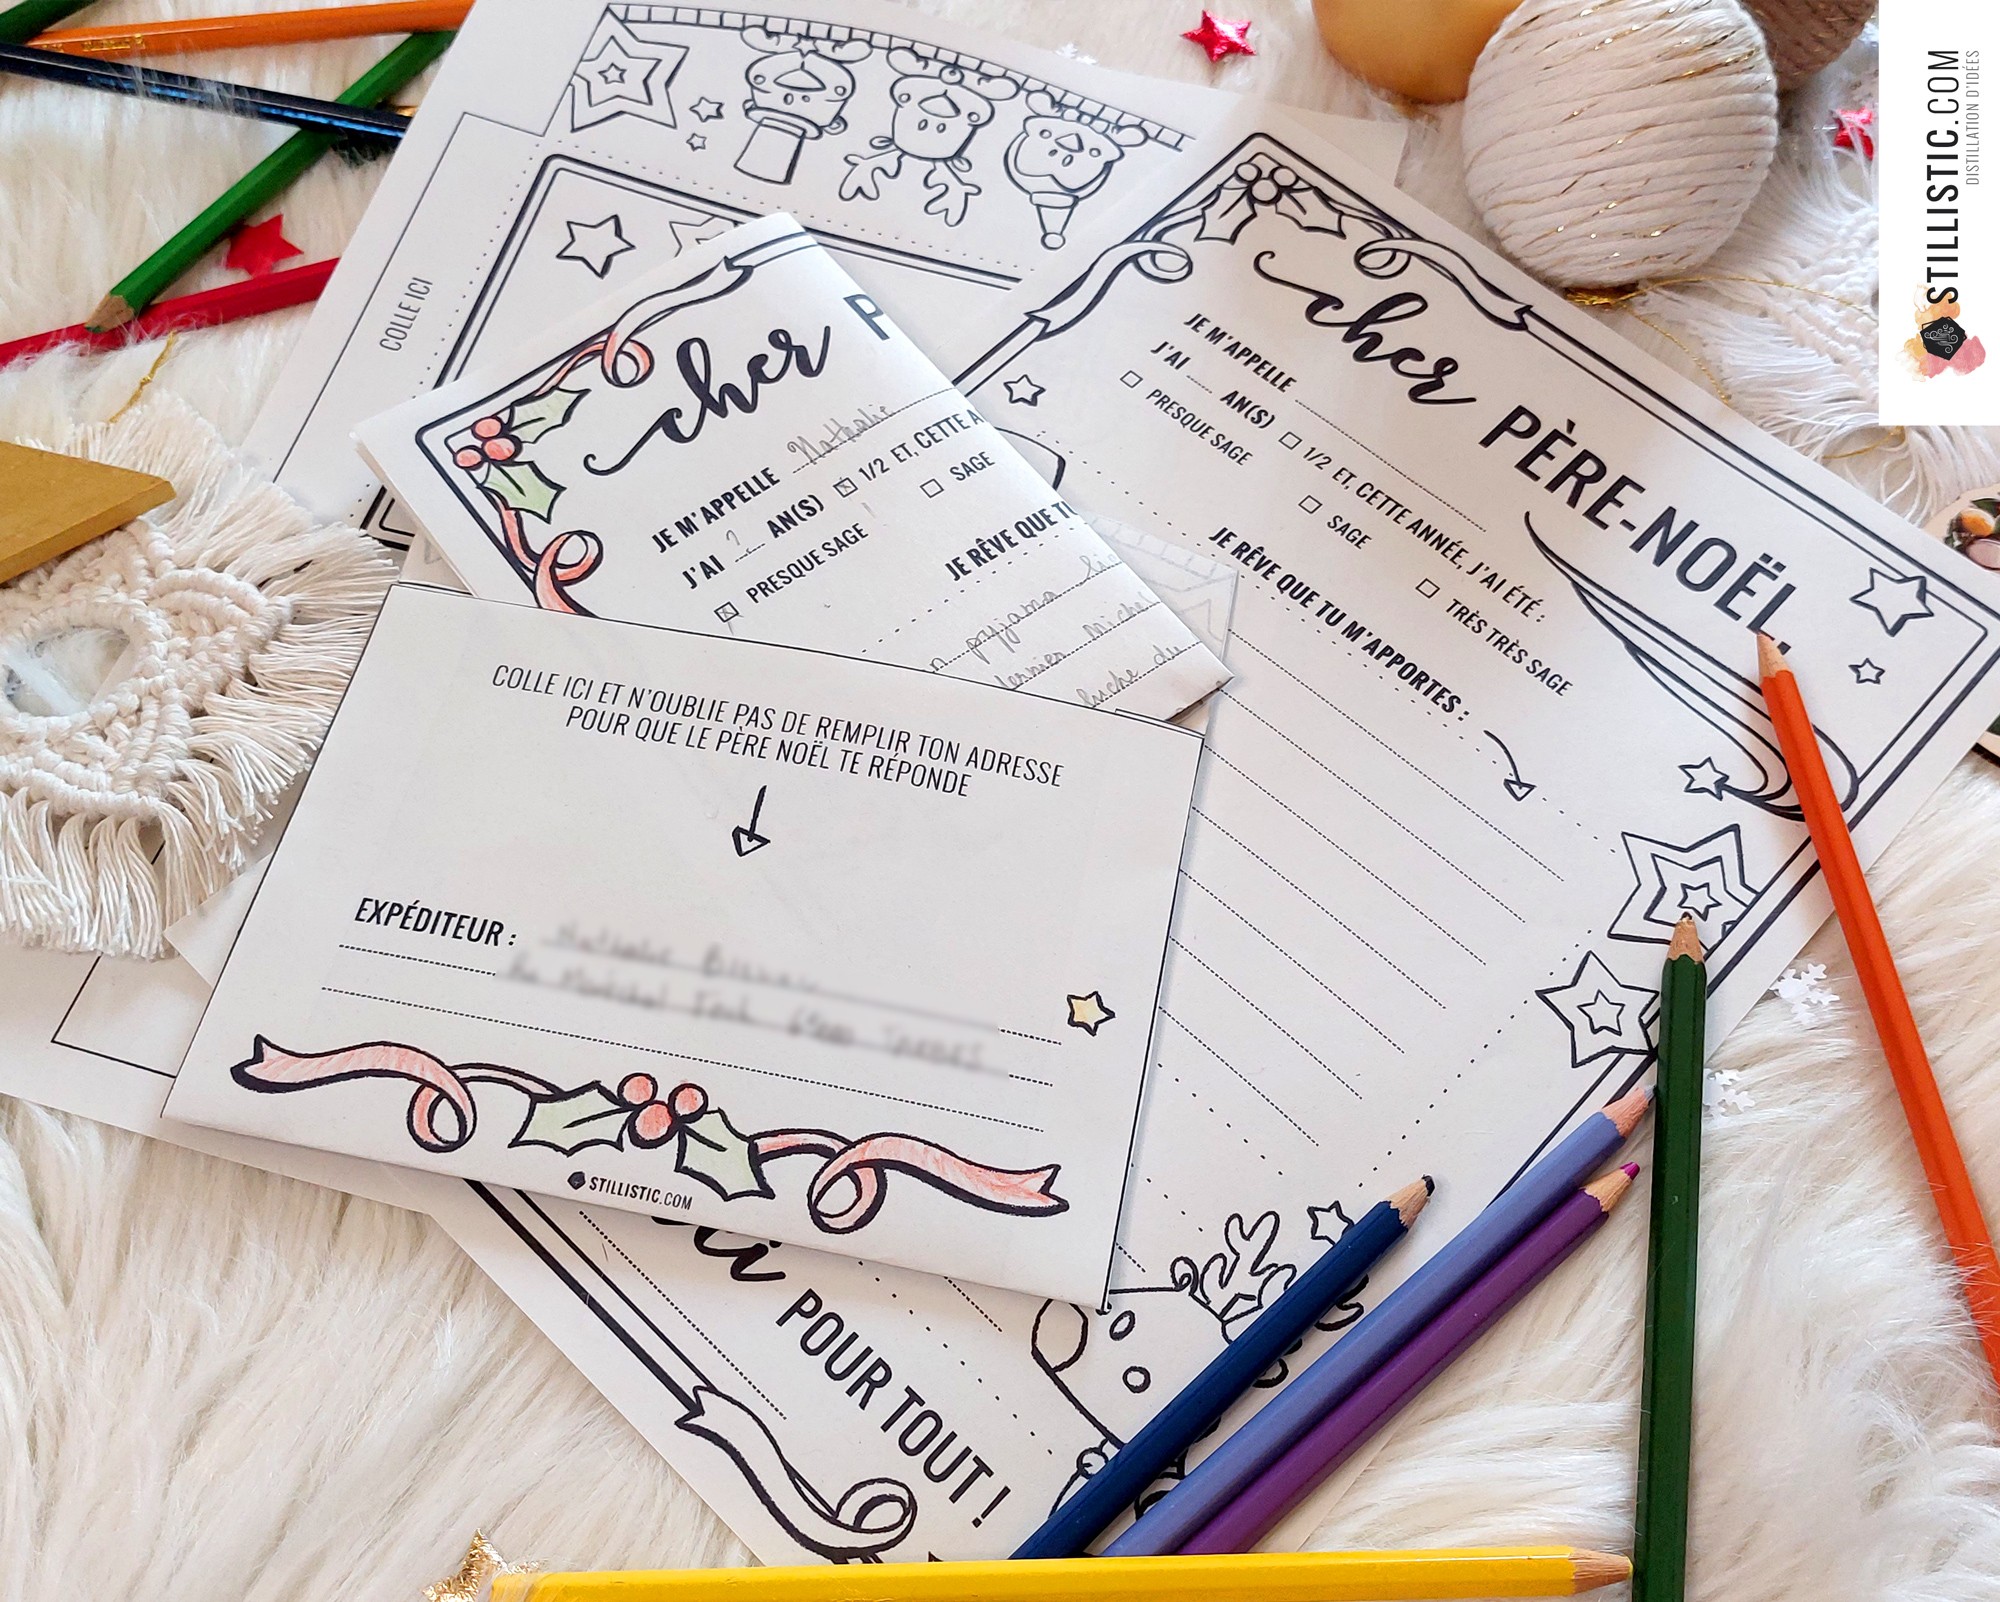 STILLISTIC.COM
DISTILLATION D'IDÉES
COLLE ICI
cher P
JE M'APPELLE Nathalie
J'AI ? AN(S) 1/2 ET, CETTE A
PRESQUE SAGE
SAGE
JE RÊVE QUE TU
pyjama
du
cher PÈRE-NOËL,
JE M'APPELLE
J'AI AN(S) 1/2 ET, CETTE ANNÉE, J'AI ÉTÉ :
PRESQUE SAGE
SAGE
TRÈS TRÈS SAGE
JE RÊVE QUE TU M'APPORTES :
COLLE ICI ET N'OUBLIE PAS DE REMPLIR TON ADRESSE
POUR QUE LE PÈRE NOËL TE RÉPONDE
EXPÉDITEUR :
STILLISTIC.COM
POUR TOUT !